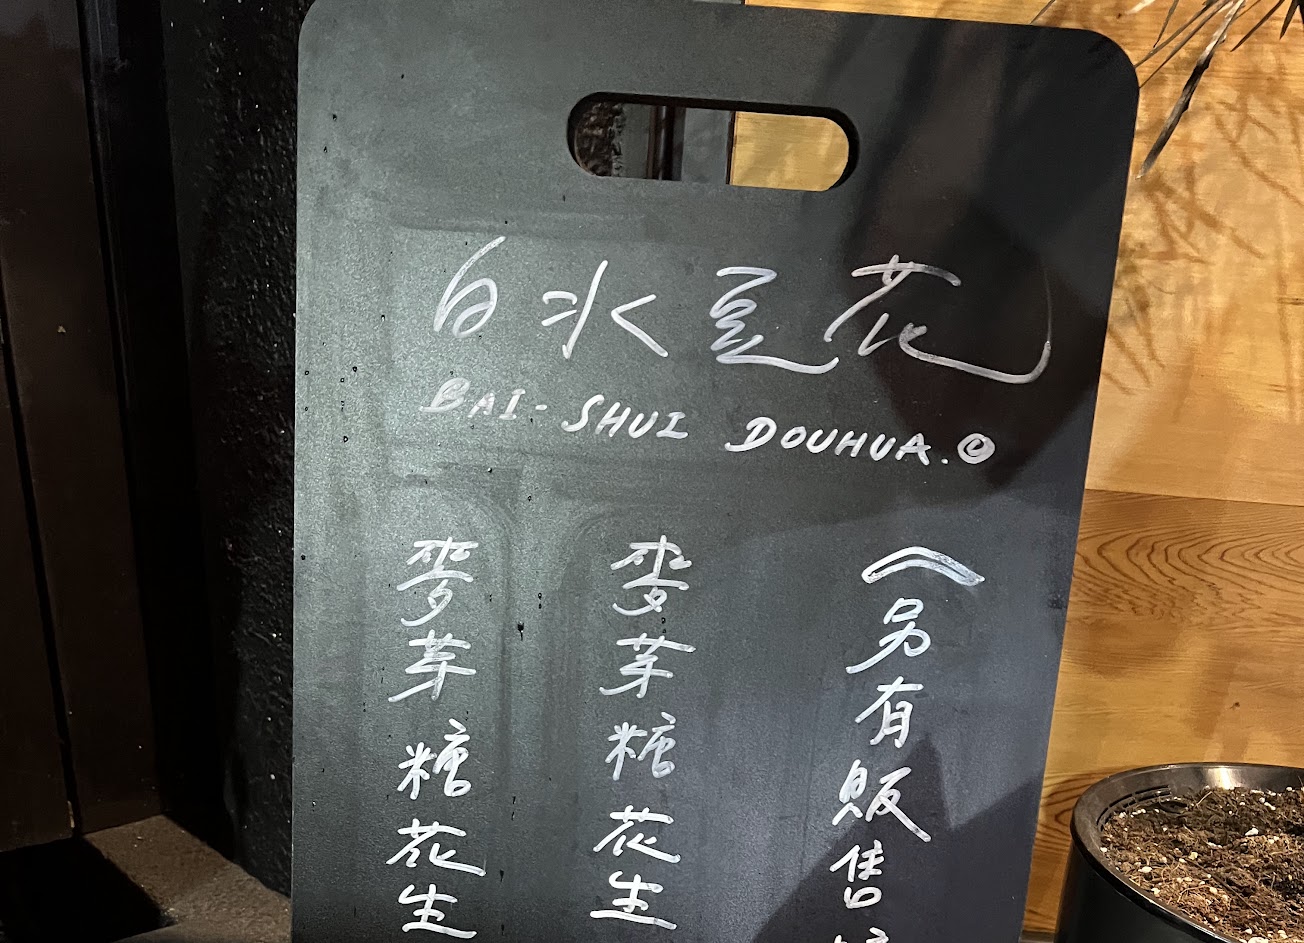 白水豆花
BAI-SHUI DOUHUA.
《另有販售
麥芽糖花生
麥芽糖花生